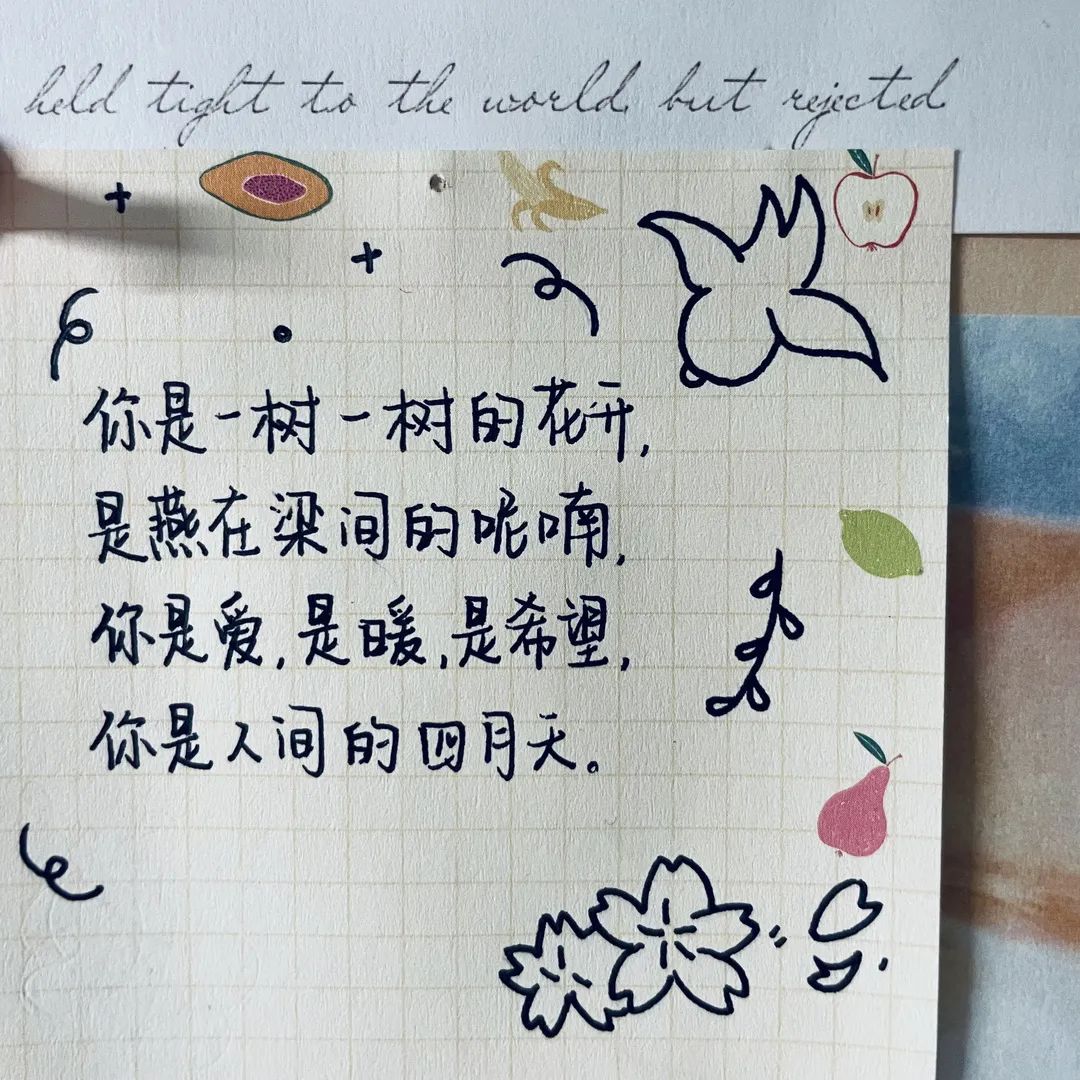 held tight to the world, but rejected
你是一树一树的花开,
是燕在梁间的呢喃,
你是爱,是暖,是希望,
你是人间的四月天。